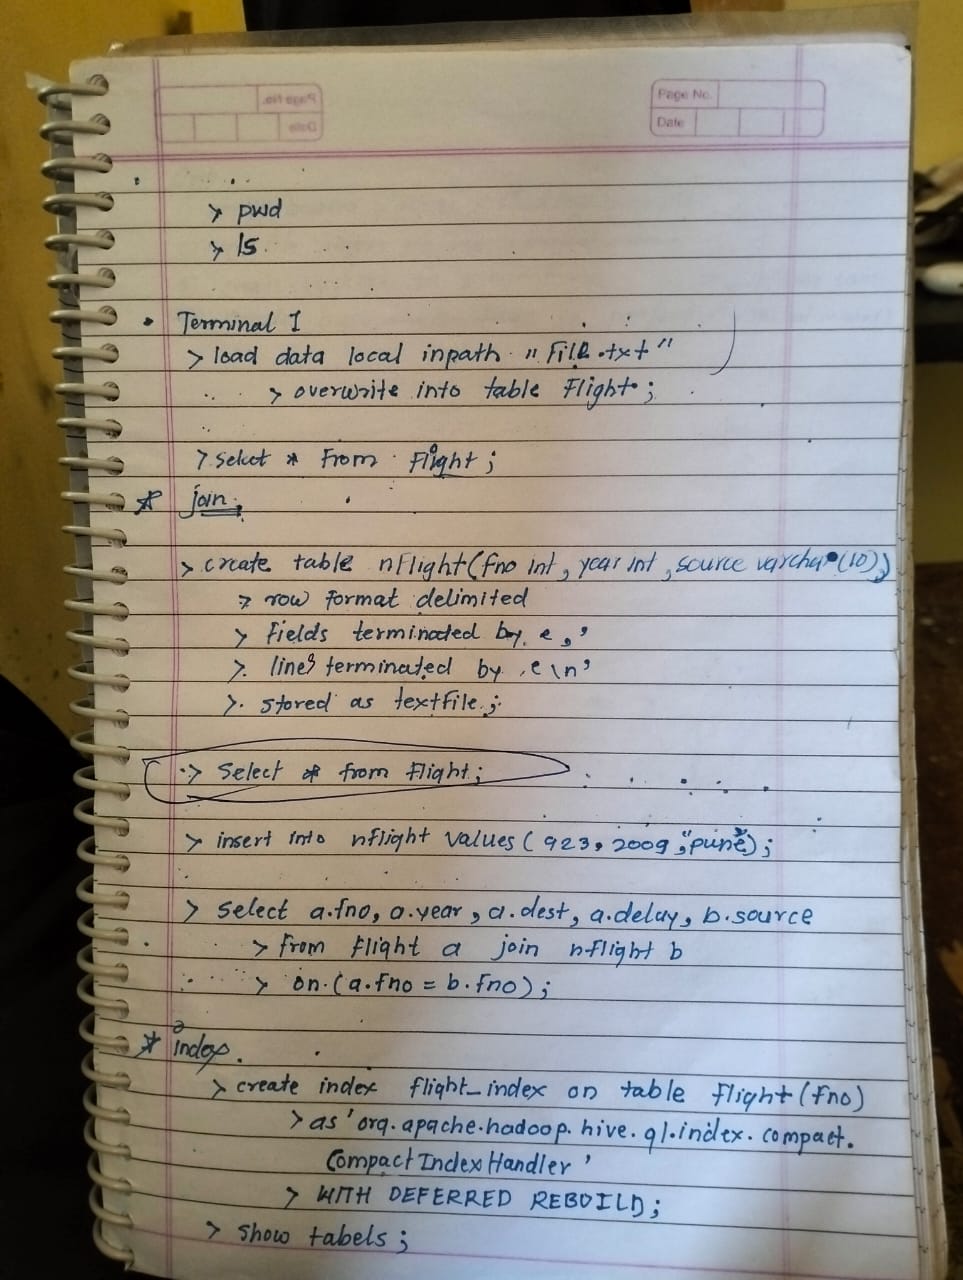 Page No.
Date
> pwd
> ls
• Terminal 1
> load data local inpath "file.txt"
> overwrite into table Flight;
> select * From Flight;
* join:
> create table nflight(fno int, year int, source varchar(10))
> row format delimited
> fields terminated by ','
> lines terminated by '\n'
> stored as textfile;
> Select * from flight;
> insert into nflight values (923, 2009, "pune");
> select a.fno, a.year, a.dest, a.delay, b.source
> from flight a join nflight b
> on (a.fno = b.fno);
* index.
> create index flight_index on table flight(fno)
> as 'org.apache.hadoop.hive.ql.index.compact.
CompactIndexHandler'
> WITH DEFERRED REBUILD;
> show tabels;